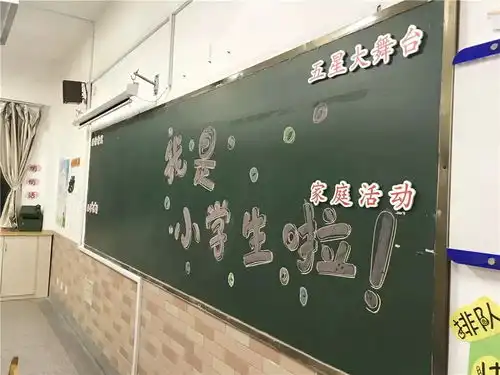 五星大舞台
我是
家庭活动
小学生啦!
排队